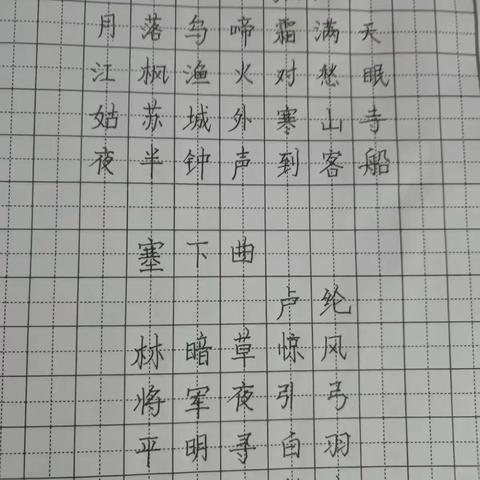 月落乌啼霜满天
江枫渔火对愁眠
姑苏城外寒山寺
夜半钟声到客船
塞下曲
卢纶
林暗草惊风
将军夜引弓
平明寻白羽